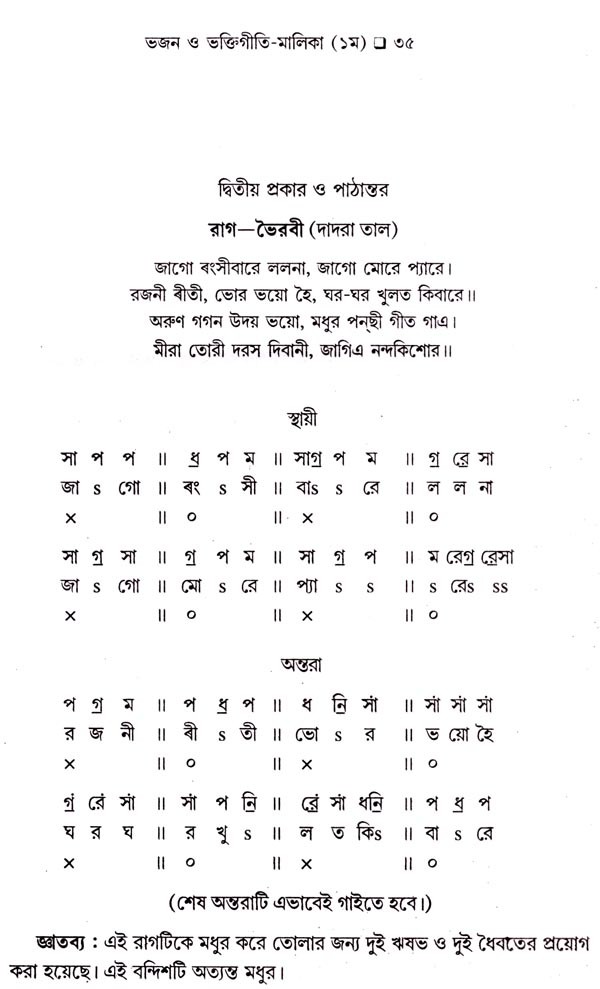 ভজন ও ভক্তিগীতি-মালিকা (১ম) ❑ ৩৫
দ্বিতীয় প্রকার ও পাঠান্তর
রাগ—ভৈরবী (দাদরা তাল)
জাগো ৰংসীবারে ললনা, জাগো মোরে প্যারে।
রজনী ৰীতী, ভোর ভয়ো হৈ, ঘর-ঘর খুলত কিবারে॥
অরুণ গগন উদয় ভয়ো, মধুর পন্‌ছী গীত গাএ।
মীরা তোরী দরস দিবানী, জাগিএ নন্দকিশোর॥
স্থায়ী
সা প প ॥ ধ̲ প ম ॥ সাগ̲ প ম ॥ গ̲ রে̲ সা
জা s গো ॥ ৰং s সী ॥ বাs s রে ॥ ল ল না
× ॥ ০ ॥ × ॥ ০
সা গ̲ সা ॥ গ̲ প ম ॥ সা গ̲ প ॥ ম রেগ̲ রে̲সা
জা s গো ॥ মো s রে ॥ প্যা s s ॥ s রেs ss
× ॥ ০ ॥ × ॥ ০
অন্তরা
প গ̲ ম ॥ প ধ̲ প ॥ ধ নি̲ সা́ ॥ সা́ সা́ সা́
র জ নী ॥ ৰী s তী ॥ ভো s র ॥ ভ য়ো হৈ
× ॥ ০ ॥ × ॥ ০
গ̲́ রে́ সা́ ॥ সা́ প নি̲ ॥ রে̲́ সা́ ধনি̲ ॥ প ধ̲ প
ঘ র ঘ ॥ র খু s ॥ ল ত কিs ॥ বা s রে
× ॥ ০ ॥ × ॥ ০
(শেষ অন্তরাটি এভাবেই গাইতে হবে।)
জ্ঞাতব্য : এই রাগটিকে মধুর করে তোলার জন্য দুই ঋষভ ও দুই ধৈবতের প্রয়োগ
করা হয়েছে। এই বন্দিশটি অত্যন্ত মধুর।